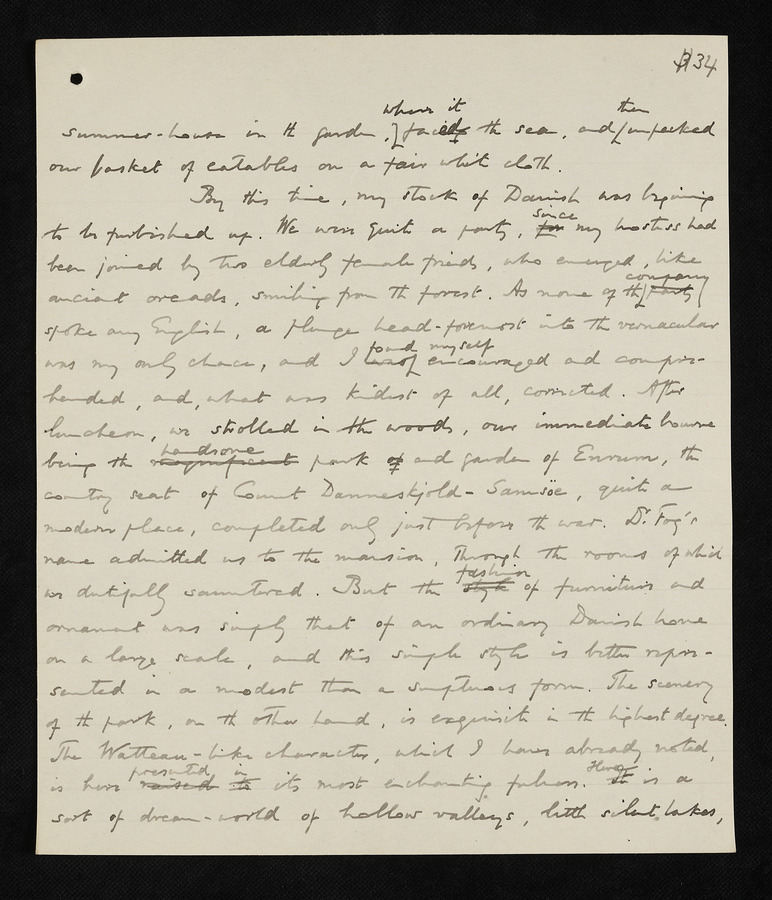 34
summer-house in th garden, where it faced th sea, and then unpacked
our basket of eatables on a fair white cloth.
By this time, my stock of Danish was beginning
to be furbished up. We were quite a party, for since my hostess had
been joined by two elderly female friends, who emerged, like
ancient oreads, smiling from th forest. As none of th party company
spoke any English, a plunge head-foremost into th vernacular
was my only chance, and I was found myself encouraged and compre-
hended, and, what was kindest of all, corrected. After
luncheon, we strolled in the woods, our immediate bourne
being th magnificent handsome park of and garden of Enrum, the
country seat of Count Danneskjold-Samsöe, quite a
modern place, completed only just before th war. Dr. Fog's
name admitted us to the mansion, through the rooms of which
we dutifully sauntered. But the style fashion of furniture and
ornament was simply that of an ordinary Danish home
on a large scale, and this simple style is better repre-
sented in a modest than a sumptuous form. The scenery
of th park, on th other hand, is exquisite in th highest degree.
The Watteau-like character, which I have already noted,
is here raised presented to in its most enchanting fulness. It Here is a
sort of dream-world of hollow valleys, little silent lakes,